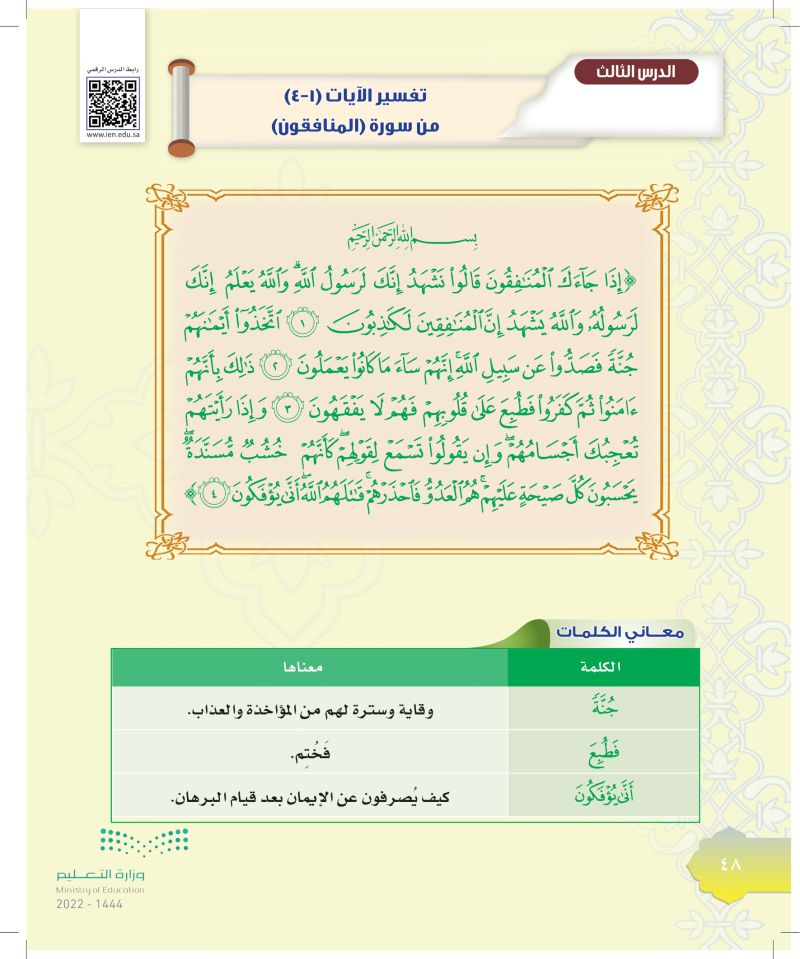 الدرس الثالث
رابط الدرس الرقمي
www.ien.edu.sa
تفسير الآيات (١-٤)
من سورة (المنافقون)
بِسْمِ اللَّهِ الرَّحْمَٰنِ الرَّحِيمِ
﴿ إِذَا جَآءَكَ ٱلْمُنَٰفِقُونَ قَالُوا۟ نَشْهَدُ إِنَّكَ لَرَسُولُ ٱللَّهِۗ وَٱللَّهُ يَعْلَمُ إِنَّكَ
لَرَسُولُهُۥ وَٱللَّهُ يَشْهَدُ إِنَّ ٱلْمُنَٰفِقِينَ لَكَٰذِبُونَ ١ ٱتَّخَذُوٓا۟ أَيْمَٰنَهُمْ
جُنَّةً فَصَدُّوا۟ عَن سَبِيلِ ٱللَّهِۚ إِنَّهُمْ سَآءَ مَا كَانُوا۟ يَعْمَلُونَ ٢ ذَٰلِكَ بِأَنَّهُمْ
ءَامَنُوا۟ ثُمَّ كَفَرُوا۟ فَطُبِعَ عَلَىٰ قُلُوبِهِمْ فَهُمْ لَا يَفْقَهُونَ ٣ وَإِذَا رَأَيْتَهُمْ
تُعْجِبُكَ أَجْسَامُهُمْۖ وَإِن يَقُولُوا۟ تَسْمَعْ لِقَوْلِهِمْۖ كَأَنَّهُمْ خُشُبٌ مُّسَنَّدَةٌۖ
يَحْسَبُونَ كُلَّ صَيْحَةٍ عَلَيْهِمْۚ هُمُ ٱلْعَدُوُّ فَٱحْذَرْهُمْۚ قَٰتَلَهُمُ ٱللَّهُۖ أَنَّىٰ يُؤْفَكُونَ ٤ ﴾
معــاني الكلمات
الكلمة معناها
جُنَّةً وقاية وسترة لهم من المؤاخذة والعذاب.
فَطُبِعَ فَخُتِم.
أَنَّىٰ يُؤْفَكُونَ كيف يُصرفون عن الإيمان بعد قيام البرهان.
وزارة التعـليم
Ministry of Education
2022 - 1444
٤٨